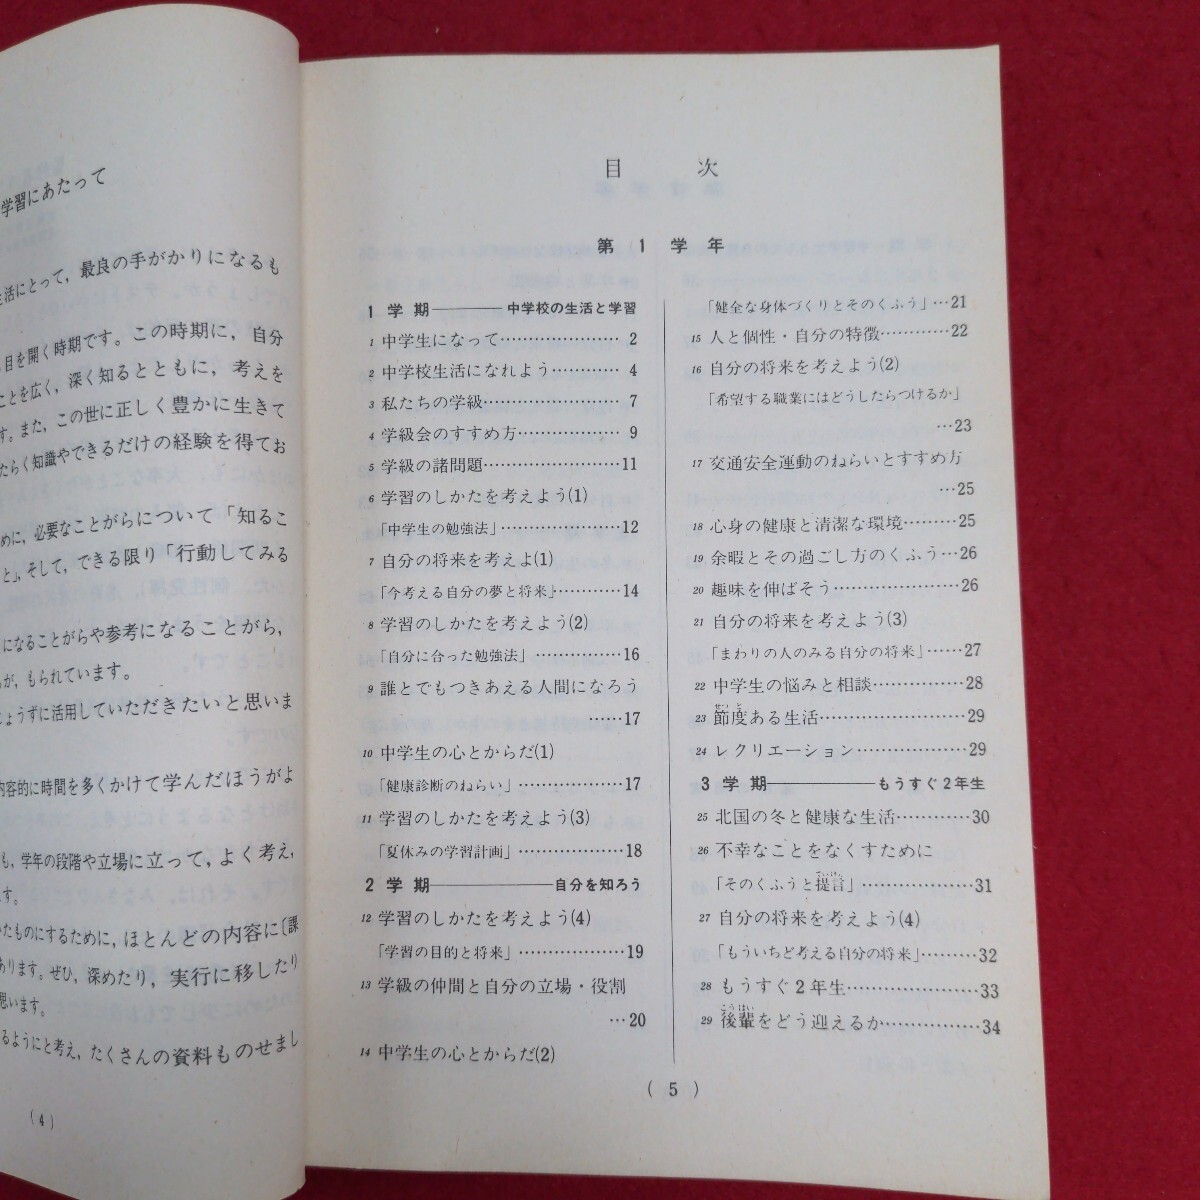 学習にあたって
生活にとって，最良の手がかりになるも
目を開く時期です。この時期に，自分
ことを広く，深く知るとともに，考えを
す。また，この世に正しく豊かに生きて
たらく知識やできるだけの経験を得てお
めに，必要なことがらについて「知るこ
と」，そして，できる限り「行動してみる
になることがらや参考になることがら，
が，もられています。
じょうずに活用していただきたいと思いま
内容的に時間を多くかけて学んだほうがよ
も，学年の段階や立場に立って，よく考え，
す。
たものにするために，ほとんどの内容に〔課
あります。ぜひ，深めたり，実行に移したり
思います。
るようにと考え，たくさんの資料ものせまし
(4)
目次
第1学年
1学期――中学校の生活と学習
1 中学生になって…………………2
2 中学校生活になれよう…………4
3 私たちの学級……………………7
4 学級会のすすめ方………………9
5 学級の諸問題……………………11
6 学習のしかたを考えよう(1)
「中学生の勉強法」………………12
7 自分の将来を考えよ(1)
「今考える自分の夢と将来」………14
8 学習のしかたを考えよう(2)
「自分に合った勉強法」…………16
9 誰とでもつきあえる人間になろう
……17
10 中学生の心とからだ(1)
「健康診断のねらい」……………17
11 学習のしかたを考えよう(3)
「夏休みの学習計画」……………18
2学期――自分を知ろう
12 学習のしかたを考えよう(4)
「学習の目的と将来」……………19
13 学級の仲間と自分の立場・役割
…20
14 中学生の心とからだ(2)
「健全な身体づくりとそのくふう」…21
15 人と個性・自分の特徴…………22
16 自分の将来を考えよう(2)
「希望する職業にはどうしたらつけるか」
…23
17 交通安全運動のねらいとすすめ方
…25
18 心身の健康と清潔な環境………25
19 余暇とその過ごし方のくふう…26
20 趣味を伸ばそう…………………26
21 自分の将来を考えよう(3)
「まわりの人のみる自分の将来」……27
22 中学生の悩みと相談……………28
23 節度ある生活……………………29
24 レクリエーション………………29
3学期――もうすぐ2年生
25 北国の冬と健康な生活…………30
26 不幸なことをなくすために
「そのくふうと提言」………………31
27 自分の将来を考えよう(4)
「もういちど考える自分の将来」………32
28 もうすぐ2年生…………………33
29 後輩をどう迎えるか……………34
(5)